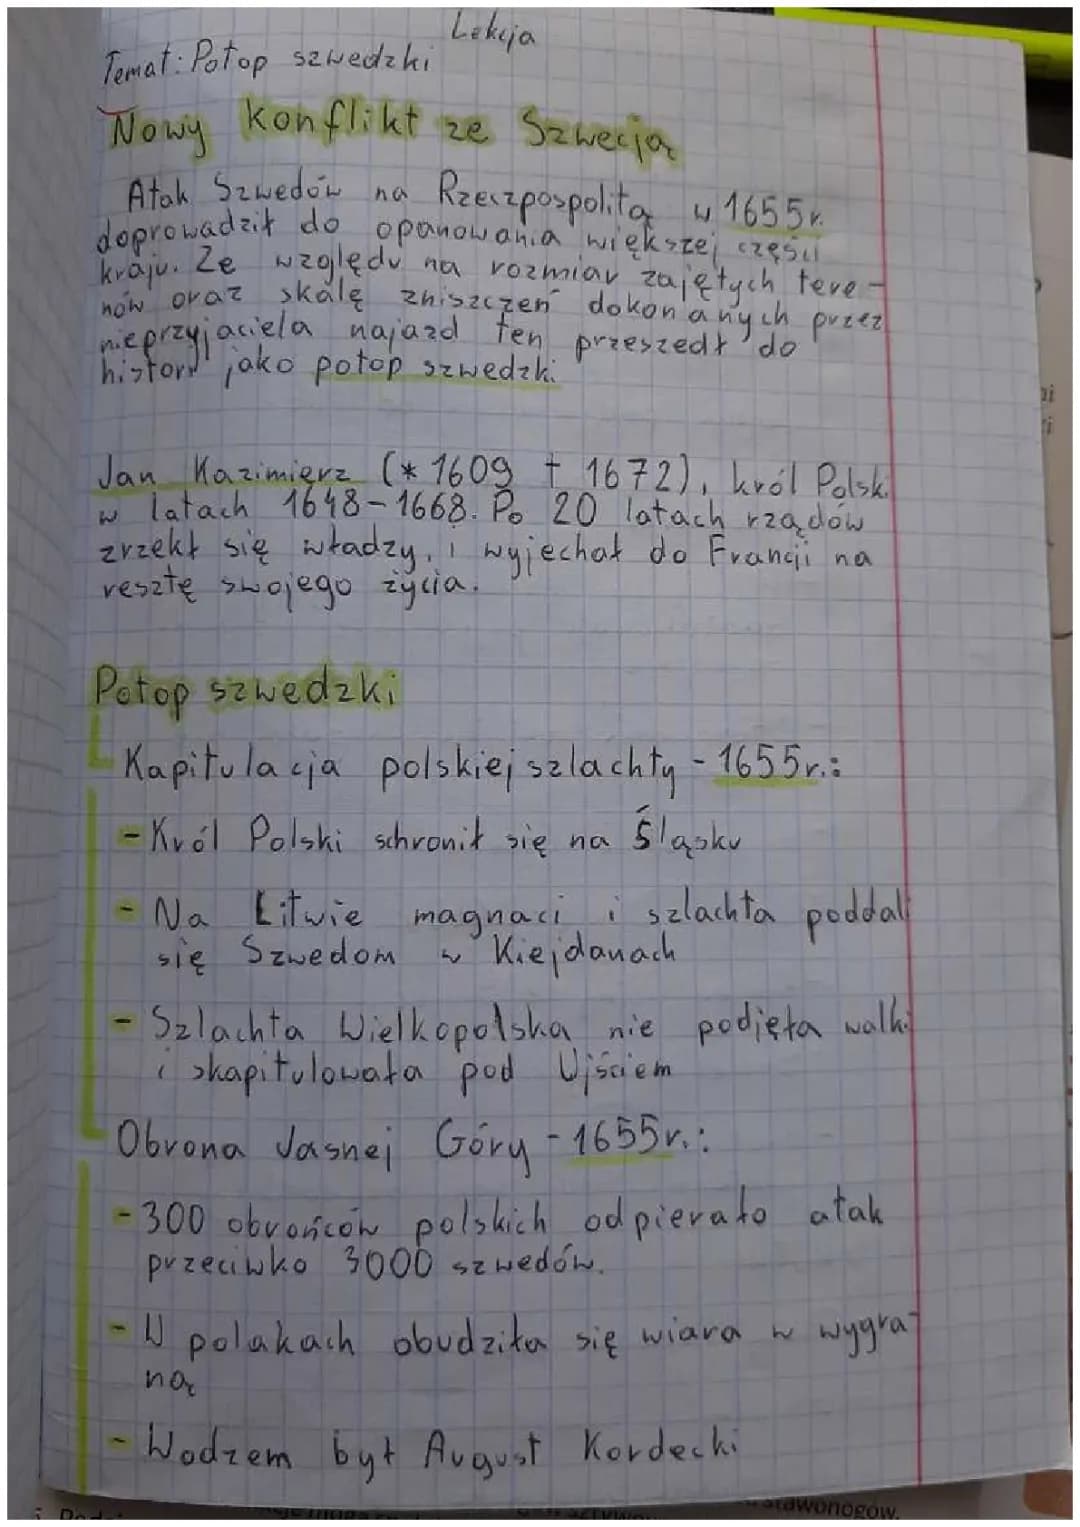 Lekcja
Temat: Potop szwedzki
Nowy konflikt ze Szwecją
Atak Szwedów na Rzeczpospolitą w 1655r.
doprowadził do opanowania większej części
kraju. Ze względu na rozmiar zajętych tere-
nów oraz skalę zniszczeń dokonanych przez
nieprzyjaciela najazd ten przeszedł do
historii jako potop szwedzki
Jan Kazimierz (* 1609 † 1672), król Polski
w latach 1648-1668. Po 20 latach rządów
zrzekł się władzy, i wyjechał do Francji na
resztę swojego życia.
Potop szwedzki
Kapitulacja polskiej szlachty - 1655r.:
- Król Polski schronił się na Śląsku
- Na Litwie magnaci i szlachta poddali
się Szwedom w Kiejdanach
- Szlachta Wielkopolska nie podjęła walki
i skapitulowała pod Ujściem
Obrona Jasnej Góry - 1655r.:
- 300 obrońców polskich odpierało atak
przeciwko 3000 szwedów.
- W polakach obudziła się wiara w wygra-
ną
- Wodzem był August Kordecki
stawonogów.